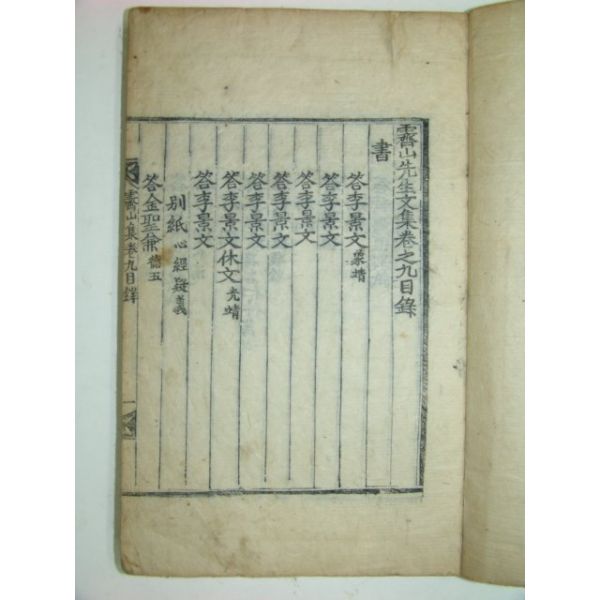 霽山先生文集卷之九目錄
書
答李景文 象靖
答李景文
答李景文
答李景文
答李景文
答李景文休文 光靖
答李景文
別紙 心經疑義
答金聖兼 德五
霽山集卷九目錄
一